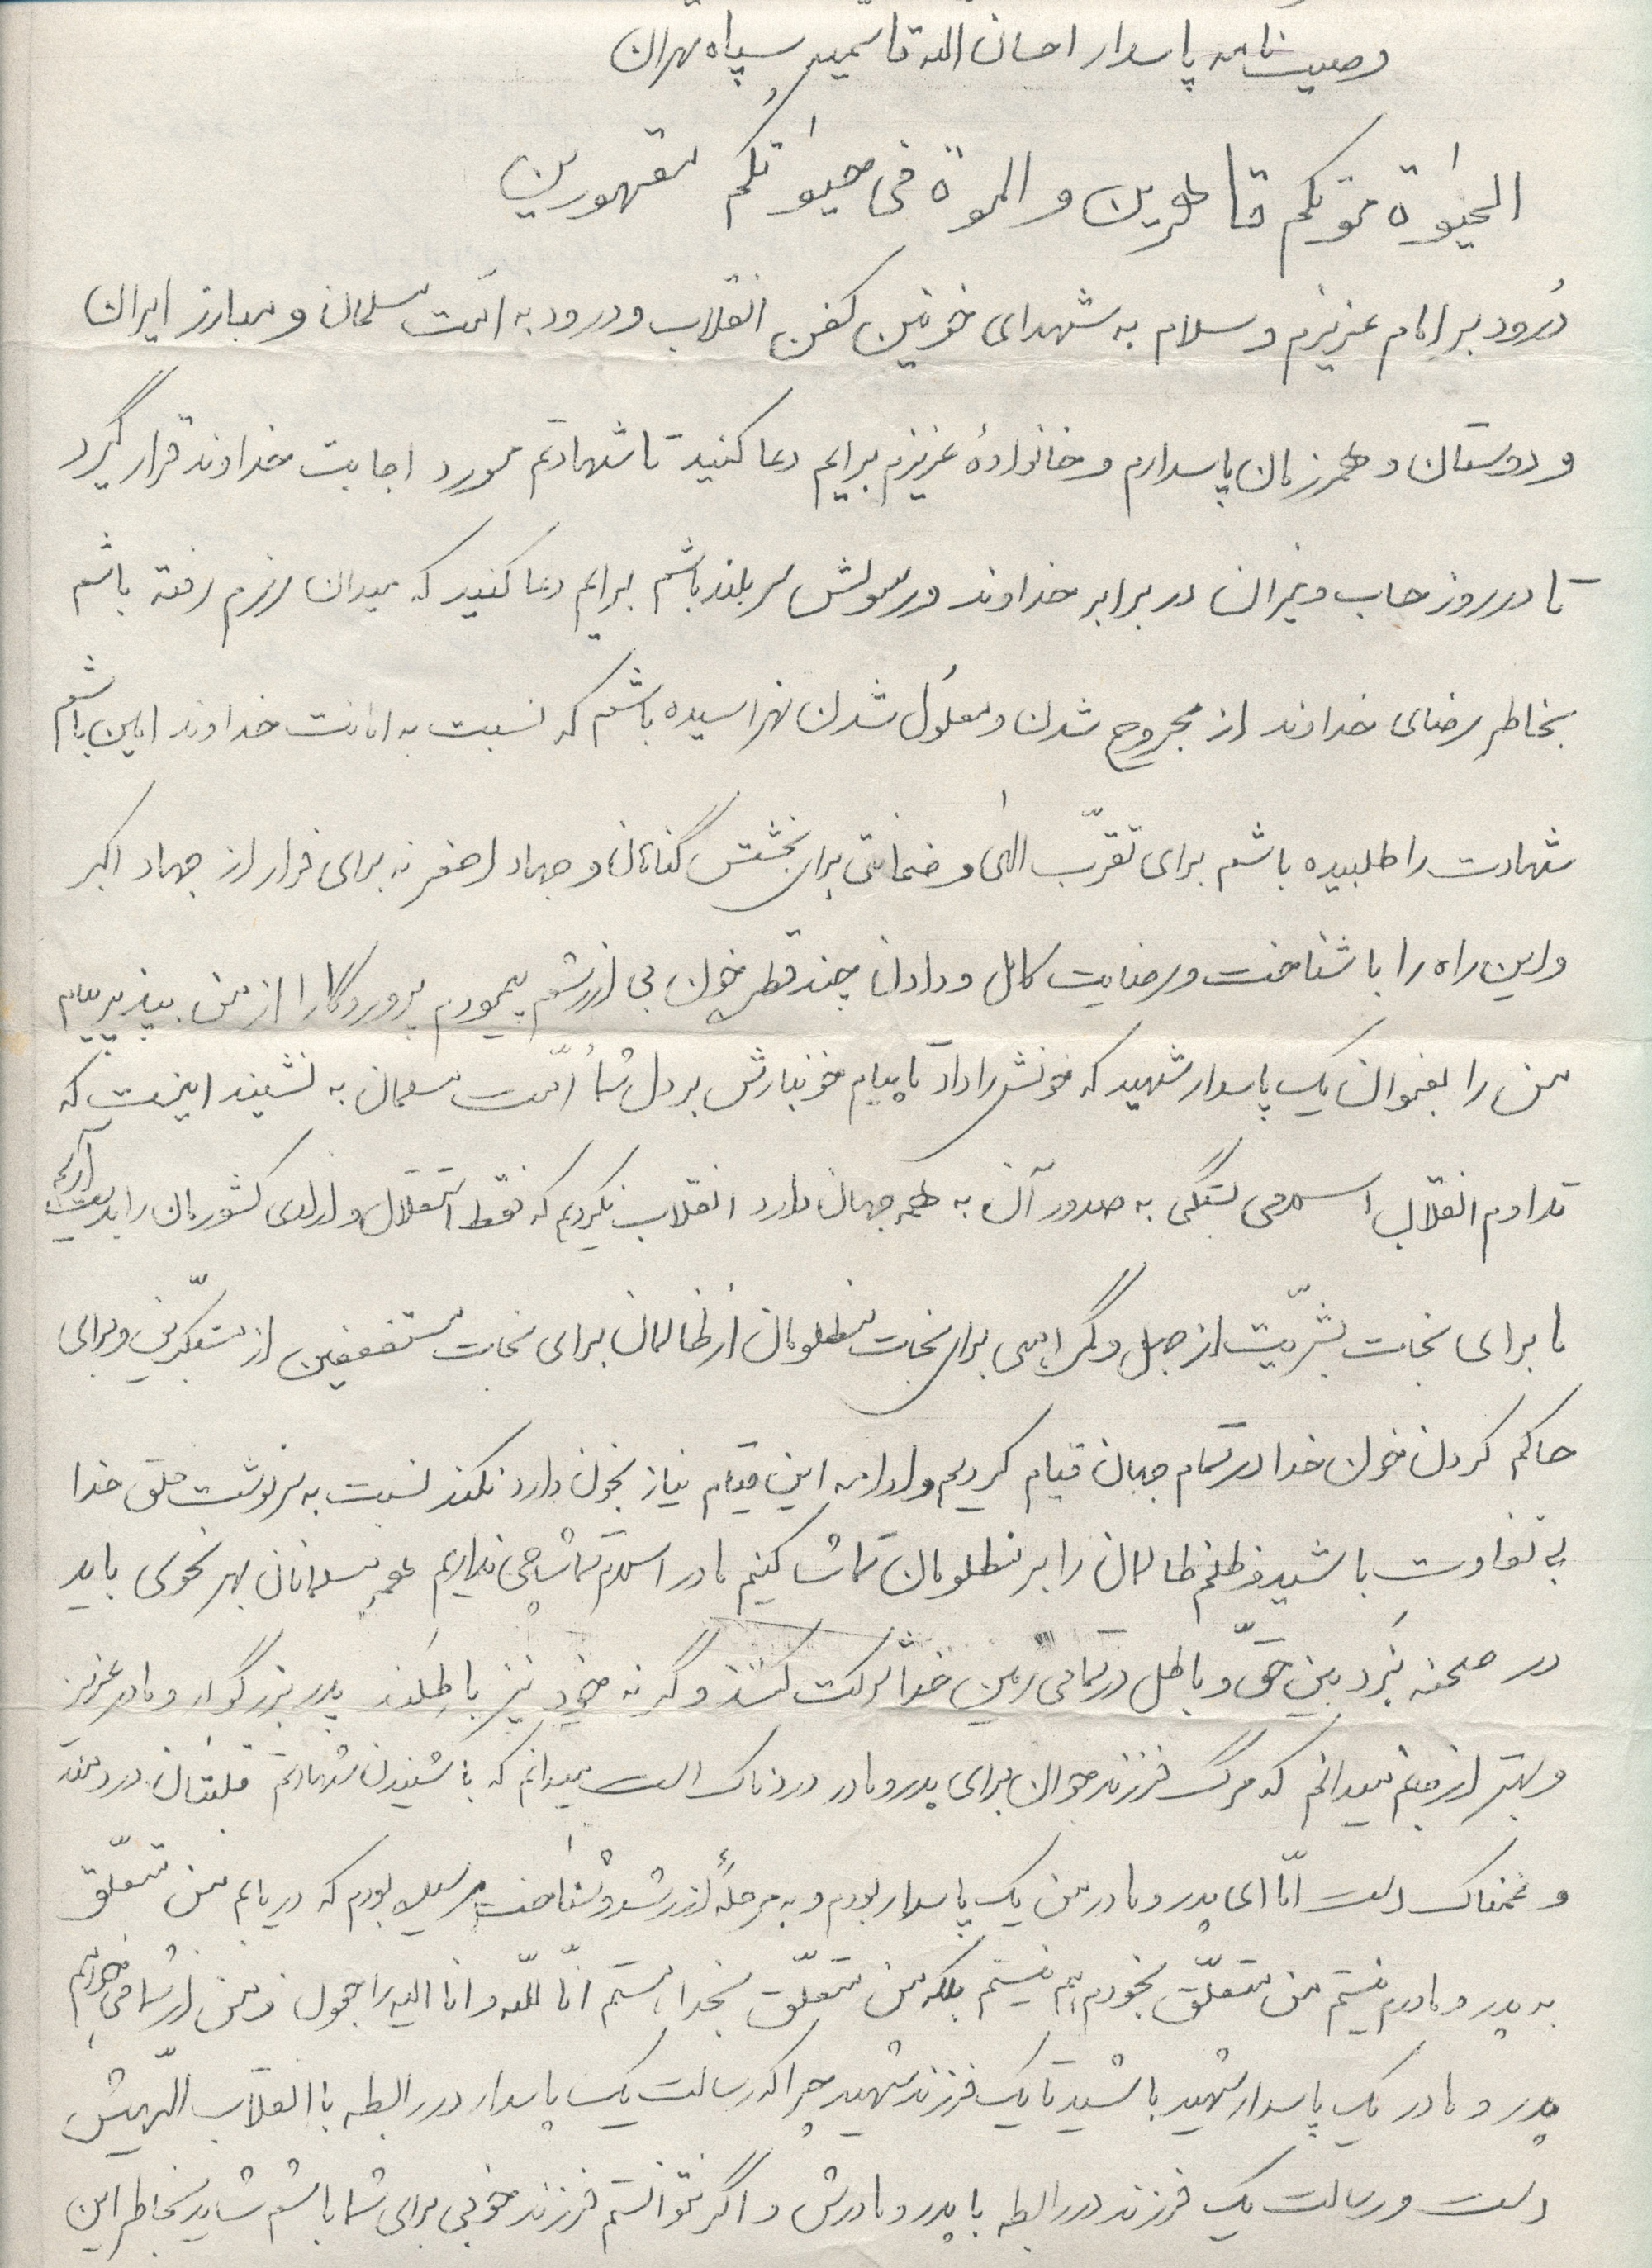 وصیت‌نامه پاسدار احسان الله قاسمیه سپاه تهران
الحیوٰة موتکم قاهرین و الموة فی حیوٰتکم مقهورین
درود بر امام عزیزم و سلام به شهدای خونین کفن انقلاب و درود به امّت مسلمان و مبارز ایران
و دوستان و همرزمان پاسدارم و خانوادهٔ عزیزم برایم دعا کنید تا شهادتم مورد اجابت خداوند قرار گیرد
تا در روز حساب و میزان در برابر خداوند و رسولش سربلند باشم برایم دعا کنید که بمیدان رزم رفته باشم
بخاطر رضای خداوند از مجروح شدن و معلول شدن نهراسیده باشم که نسبت به امانت خداوند امین باشم
شهادت را طلبیده باشم برای تقرّب الهٰی و ضمانتی برای بخشش گناهان و جهاد اصغر نه برای فرار از جهاد اکبر
و این راه را با شناخت و رضایت کامل و دادن چند قطره خون بی ارزشم پیمودم پروردگارا از من بپذیر پیام
من را بعنوان یک پاسدار شهید که خونش را داد تا پیام خونبارش بر دل شما امّت مسلمان به نشیند اینست که
تداوم انقلاب اسلامی بستگی به صدور آن به همه جهان دارد انقلاب نکردیم که فقط استقلال و آزادی کشورمان را بدست آریم
ما برای نجات بشرّیت از جهل و گمراهی برای نجات مظلومان از ظالمان برای نجات مستضعفین از مستکبّرین و برای
حاکم کردن خون خدا در تمام جهان قیام کردیم و ادامه این قیام نیاز بخون دارد نکند نسبت به سرنوشت خلق خدا
بی تفاوت باشید و ظلم ظالمان را بر مظلومان تماشا کنیم ما در اسلام تماشاچی نداریم همه مسلمانان بهر نحوی باید
در صحنه نبرد بین حقّ و باطل در تمامی زمین خدا شرکت کنند وگرنه خود نیز باطلند پدر بزرگوار و مادر عزیز
و بهتر از جانم میدانم که مرگ فرزند جوان برای پدر و مادر دردناک است میدانم که با شنیدن شهادتم قلبتان دردمند
و غمناک است امّا ای پدر و مادر من یک پاسدار بودم و به مرحلهٔ از رشد و شناخت رسیده بودم که دریابم من متعلّق
به پدر و مادرم نیستم من متعلّق بخودم هم نیستم بلکه من متعلّق بخدا هستم انّا للّه و انا الیه راجعون و من از شما می‌خواهم
پدر و مادر یک پاسدار شهید باشید تا یک فرزند شهید چرا که رسالت یک پاسدار در رابطه با انقلاب الهّیش
است و رسالت یک فرزند در رابطه با پدر و مادرش و اگر نتوانستم فرزند خوبی برای شما باشم شاید بخاطر این